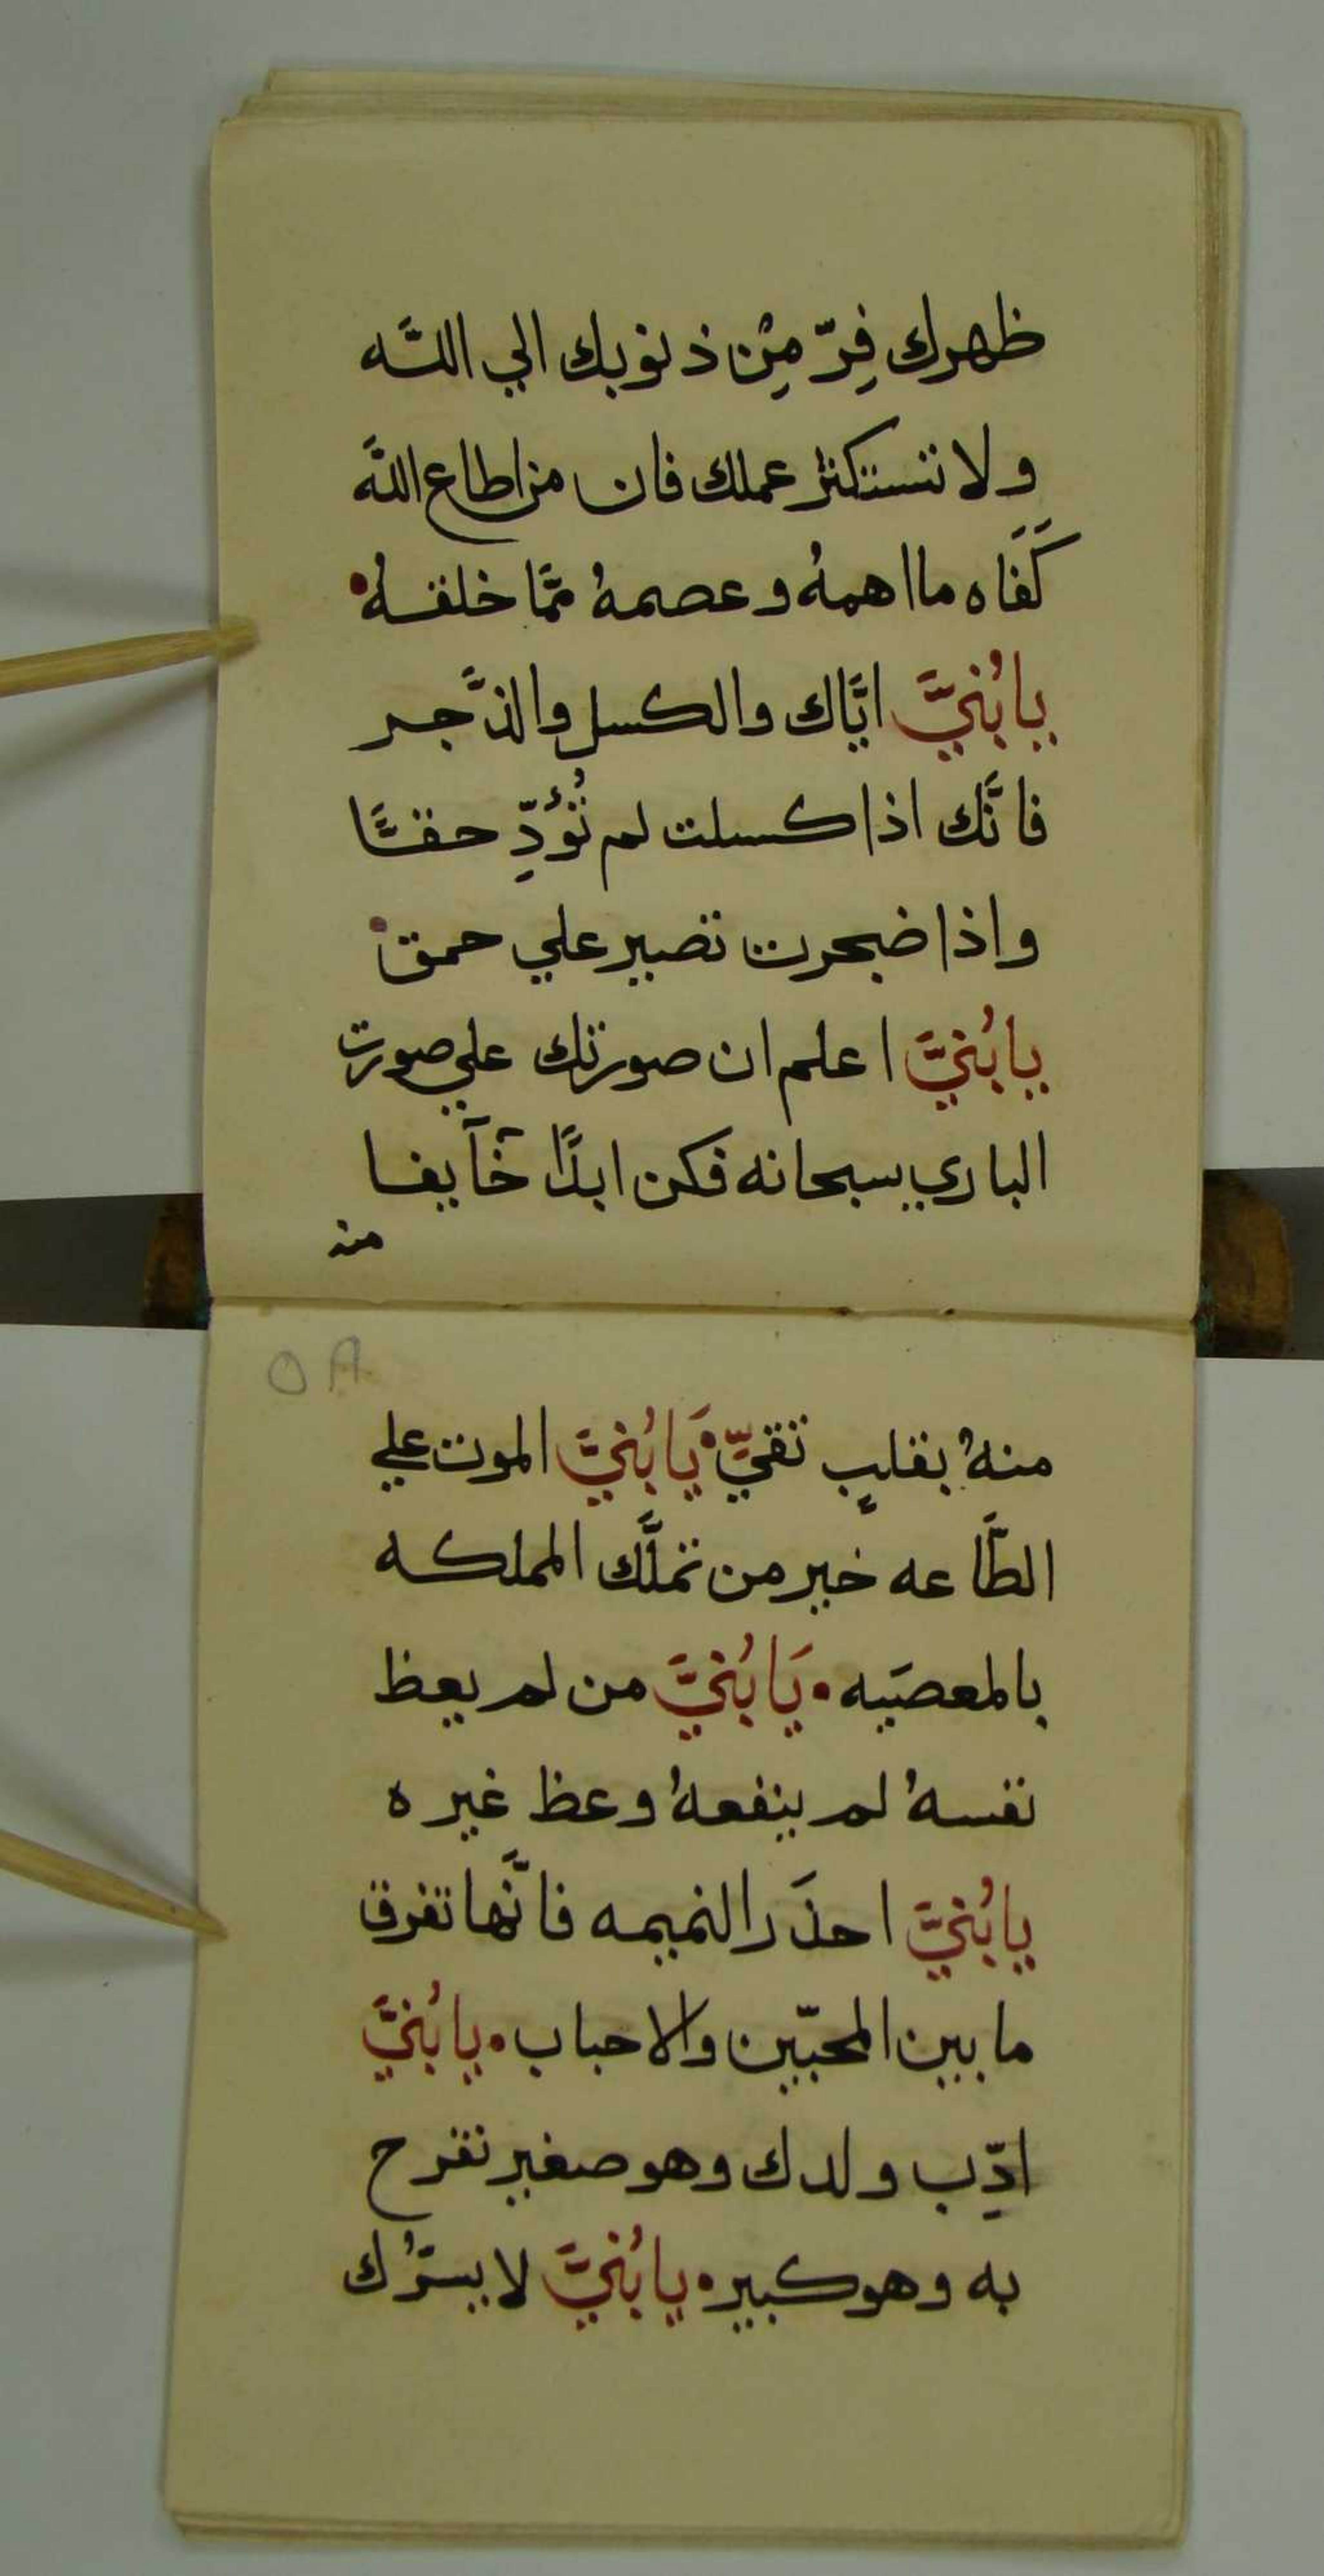 ظهرك فِرّ مِنْ ذنوبك الي اللَّه
ولا تستكثر عملك فان من اطاع اللَّه
كَفَاه ما اهمهُ وعصمهُ ممَّا خلفهُ•
يا بُنيَّ ايَّاك والكسل والذَّجر
فانَّك اذا كسلت لم تُؤدِّ حقًّا
واذا ضجرت تصبر علي حمق•
يا بُنيَّ اعلم ان صورتك علي صورت
الباري سبحانه فكن ابدًا خآيفا
منه
٥٨
منهُ بقلبٍ تقيّ• يَا بُنيَّ الموت علي
الطَّاعه خير من تملَّك المملكه
بالمعصَيه• يَا بُنيَّ من لم يعظ
نفسهُ لم ينفعهُ وعظ غيره
يا بُنيَّ احذَر النميمه فانَّها تفرق
ما بين المحبّين والاحباب• يا بُنيَّ
ادِّب ولدك وهو صغير تفرح
به وهو كبير• يا بُنيَّ لا يسرُّك